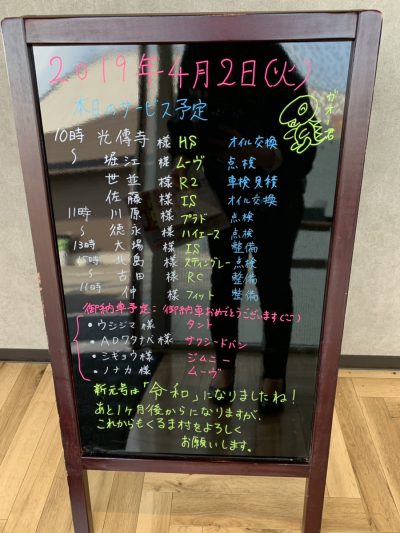 2019年4月2日(火)
本日のサービス予定
ガオー君
10時 光傳寺 様 HS オイル交換
〜 堀江 様 ムーヴ 点検
世並 様 R2 車検見積
佐藤 様 IS オイル交換
11時 川原 様 プラド 点検
〜 徳永 様 ハイエース 点検
13時 大場 様 IS 整備
15時 北島 様 スティングレー 点検
〜 古田 様 RC 整備
16時 仲 様 フィット 整備
御納車予定:御納車おめでとうございます
・ウシジマ様 タント
・ADワタナベ様 サクシードバン
・シキョウ様 ジムニー
・ノナカ様 ムーヴ
新元号は「令和」になりましたね!
あと1ヶ月後からになりますが、
これからもくるま村をよろしく
お願いします。